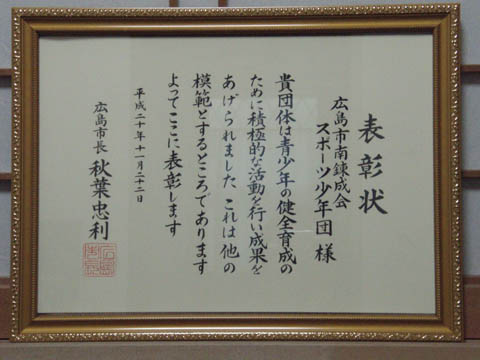 表彰状
広島市南錬成会
スポーツ少年団 様
貴団体は青少年の健全育成の
ために積極的な活動を行い成果を
あげられました これは他の
模範とするところであります
よってここに表彰します
平成二十年十一月二十二日
広島市長 秋葉忠利